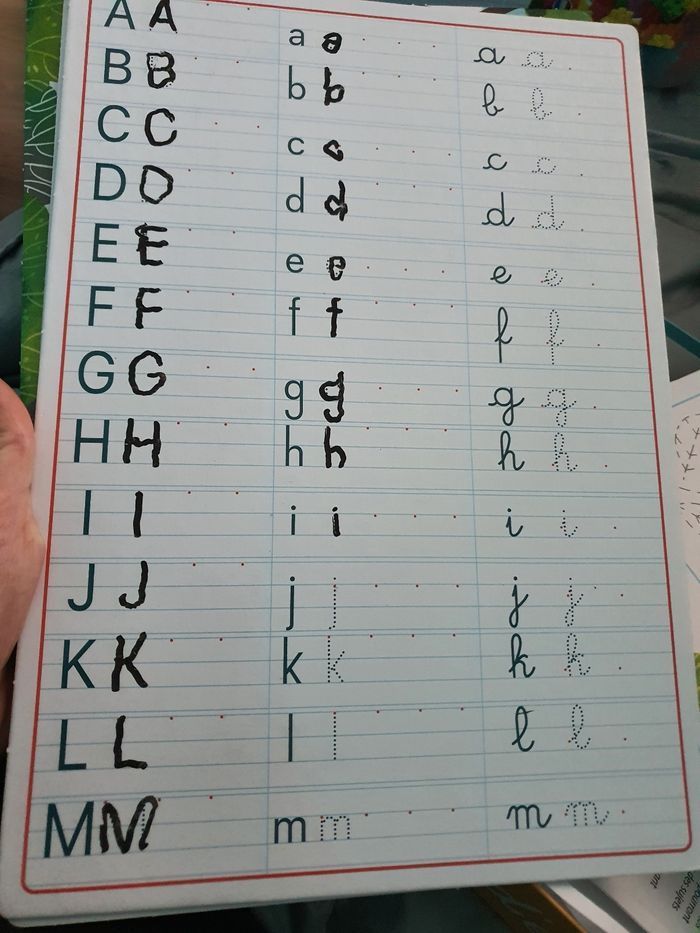 A A a a a a
B B b b b b
C C c c c c
D D d d d d
E E e e e e
F F f f f f
G G g g g g
H H h h h h
I I i i i i
J J j j j j
K K k k k k
L L l l l l
M M m m m m
des sujets